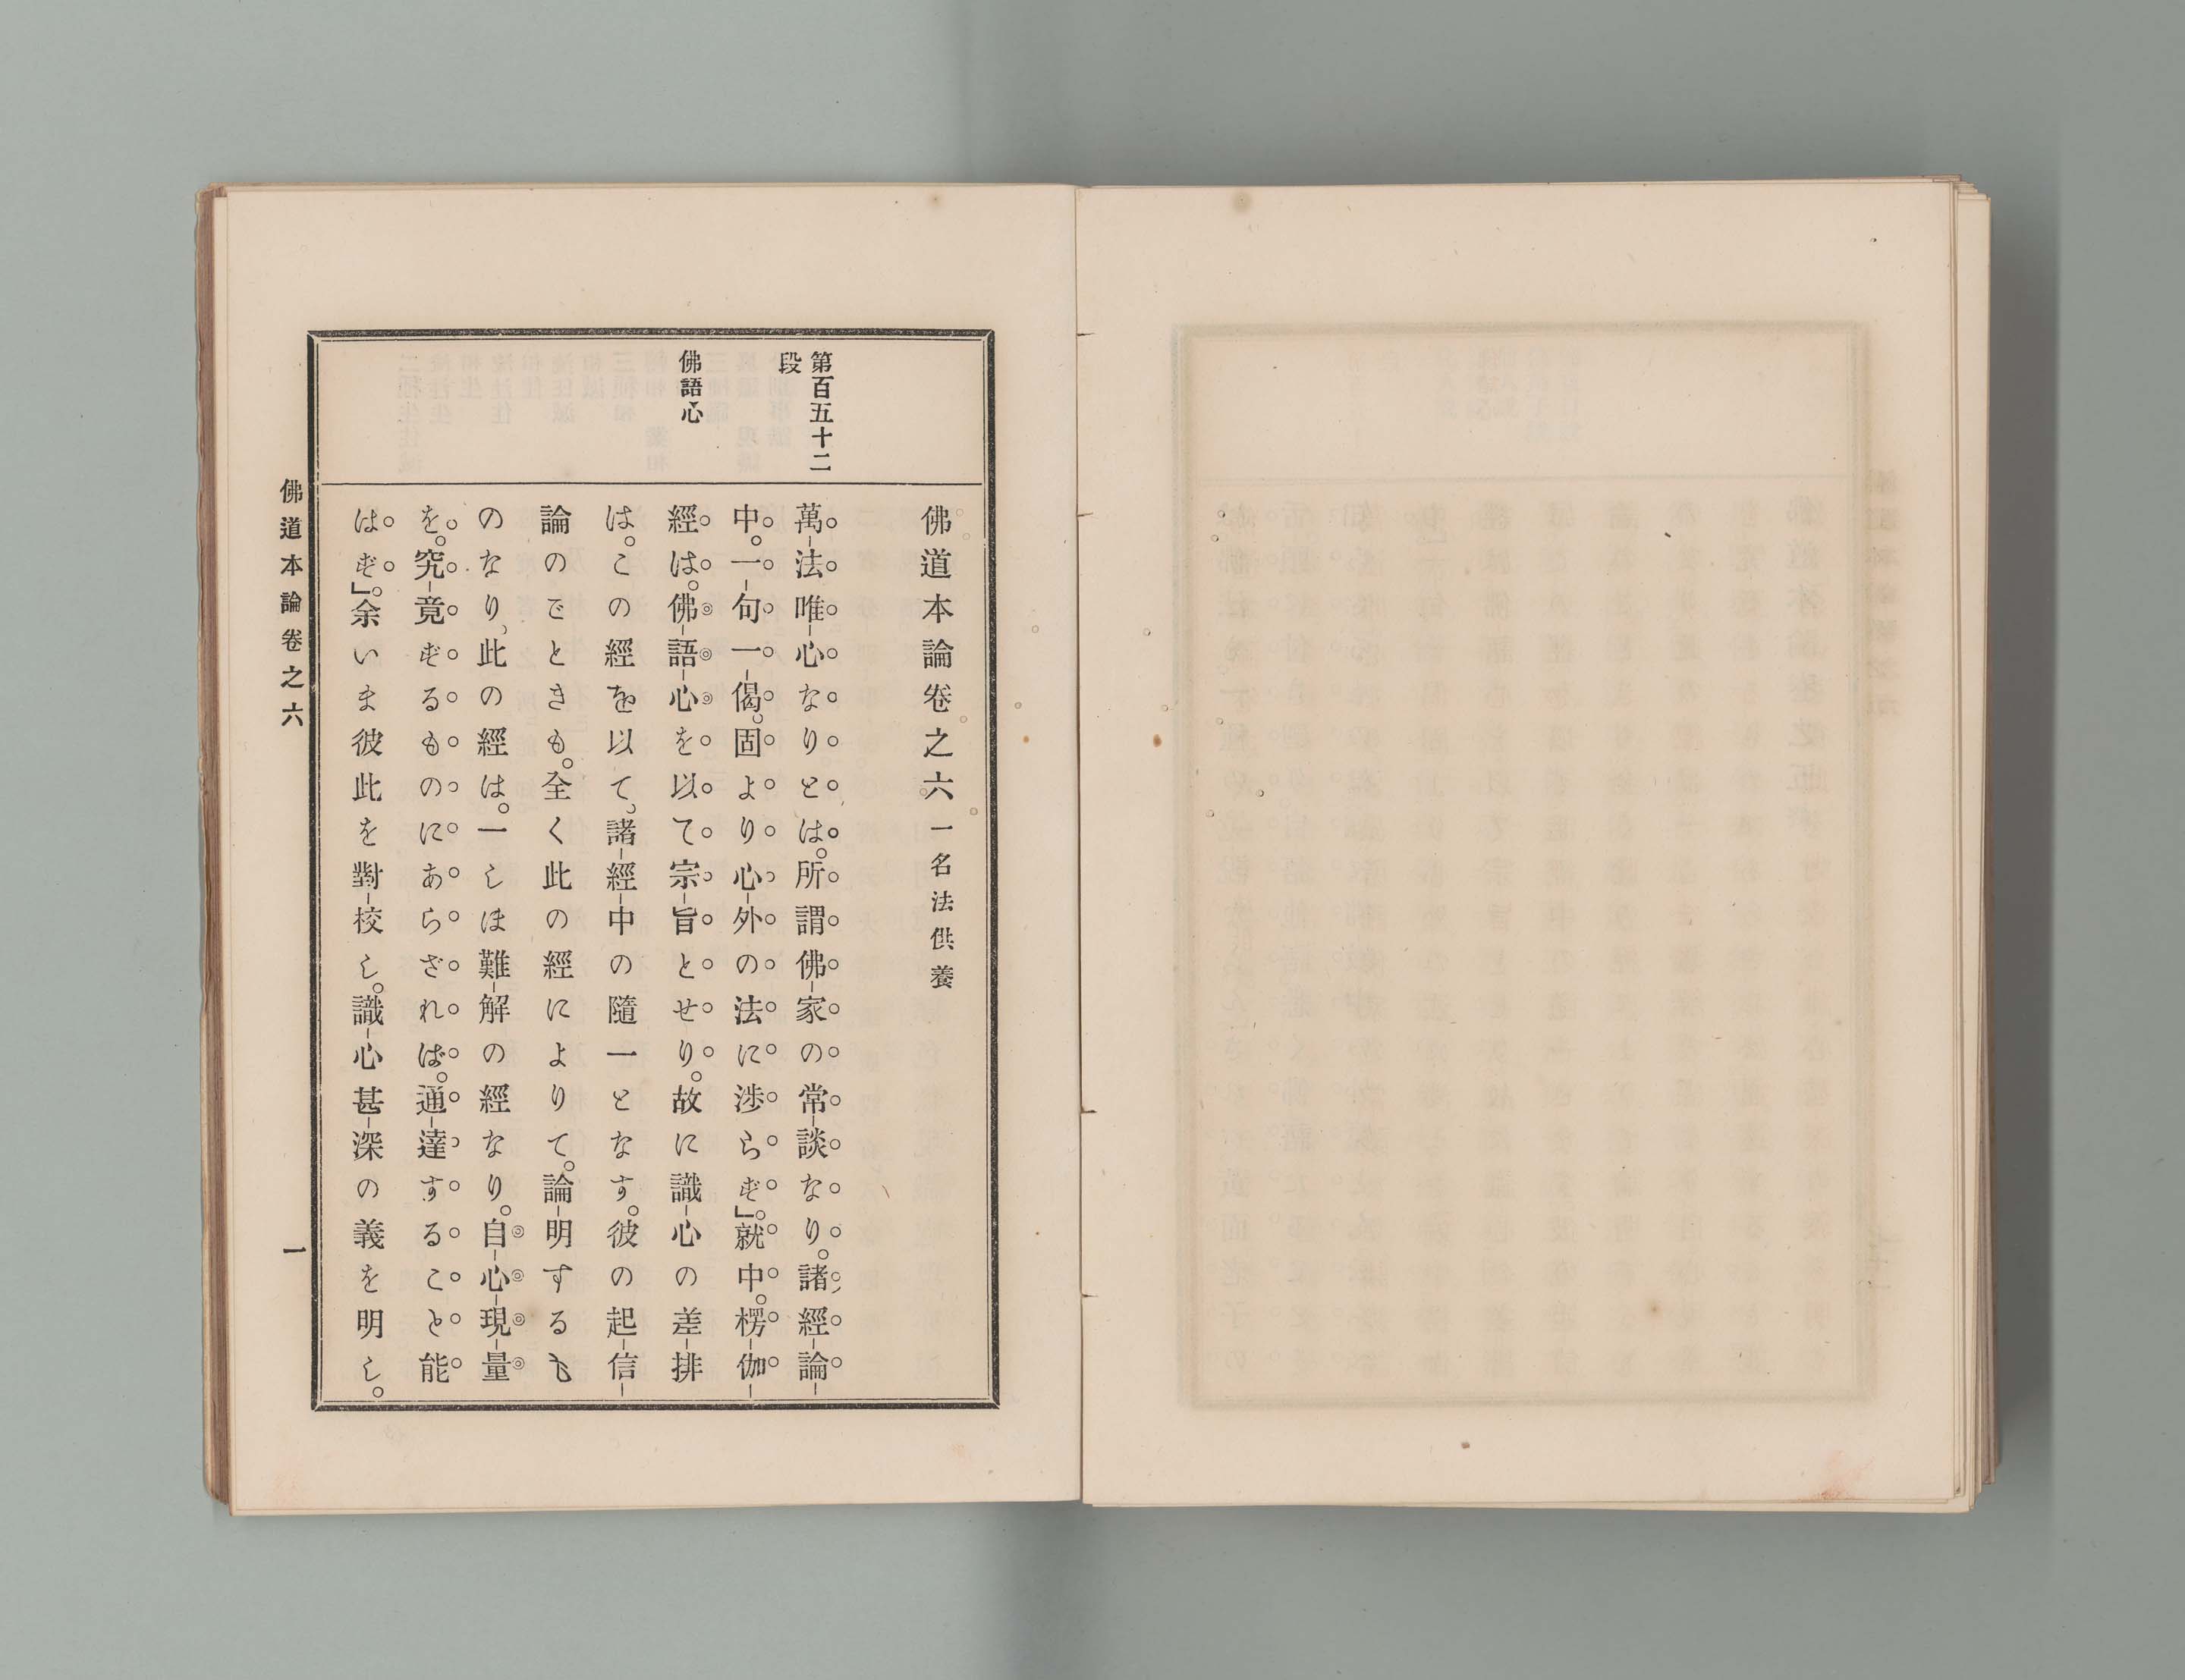 佛道本論卷之六 一名法供養
第百五十二
段
萬法唯心なりとは。所謂佛家の常談なり。諸經論
中。一句一偈。固より心外の法に渉らず」。就中。楞伽
佛語心
經は。佛語心を以て宗旨とせり。故に識心の差排
は。この經を以て、諸經中の隨一となす。彼の起信
論のごときも。全く此の經によりて。論明するも
のなり、此の經は。一しほ難解の經なり。自心現量
を。究竟ずるものにあらざれば。通達すること能
はず」。余いま彼此を對校し。識心甚深の義を明し。
佛道本論卷之六
一